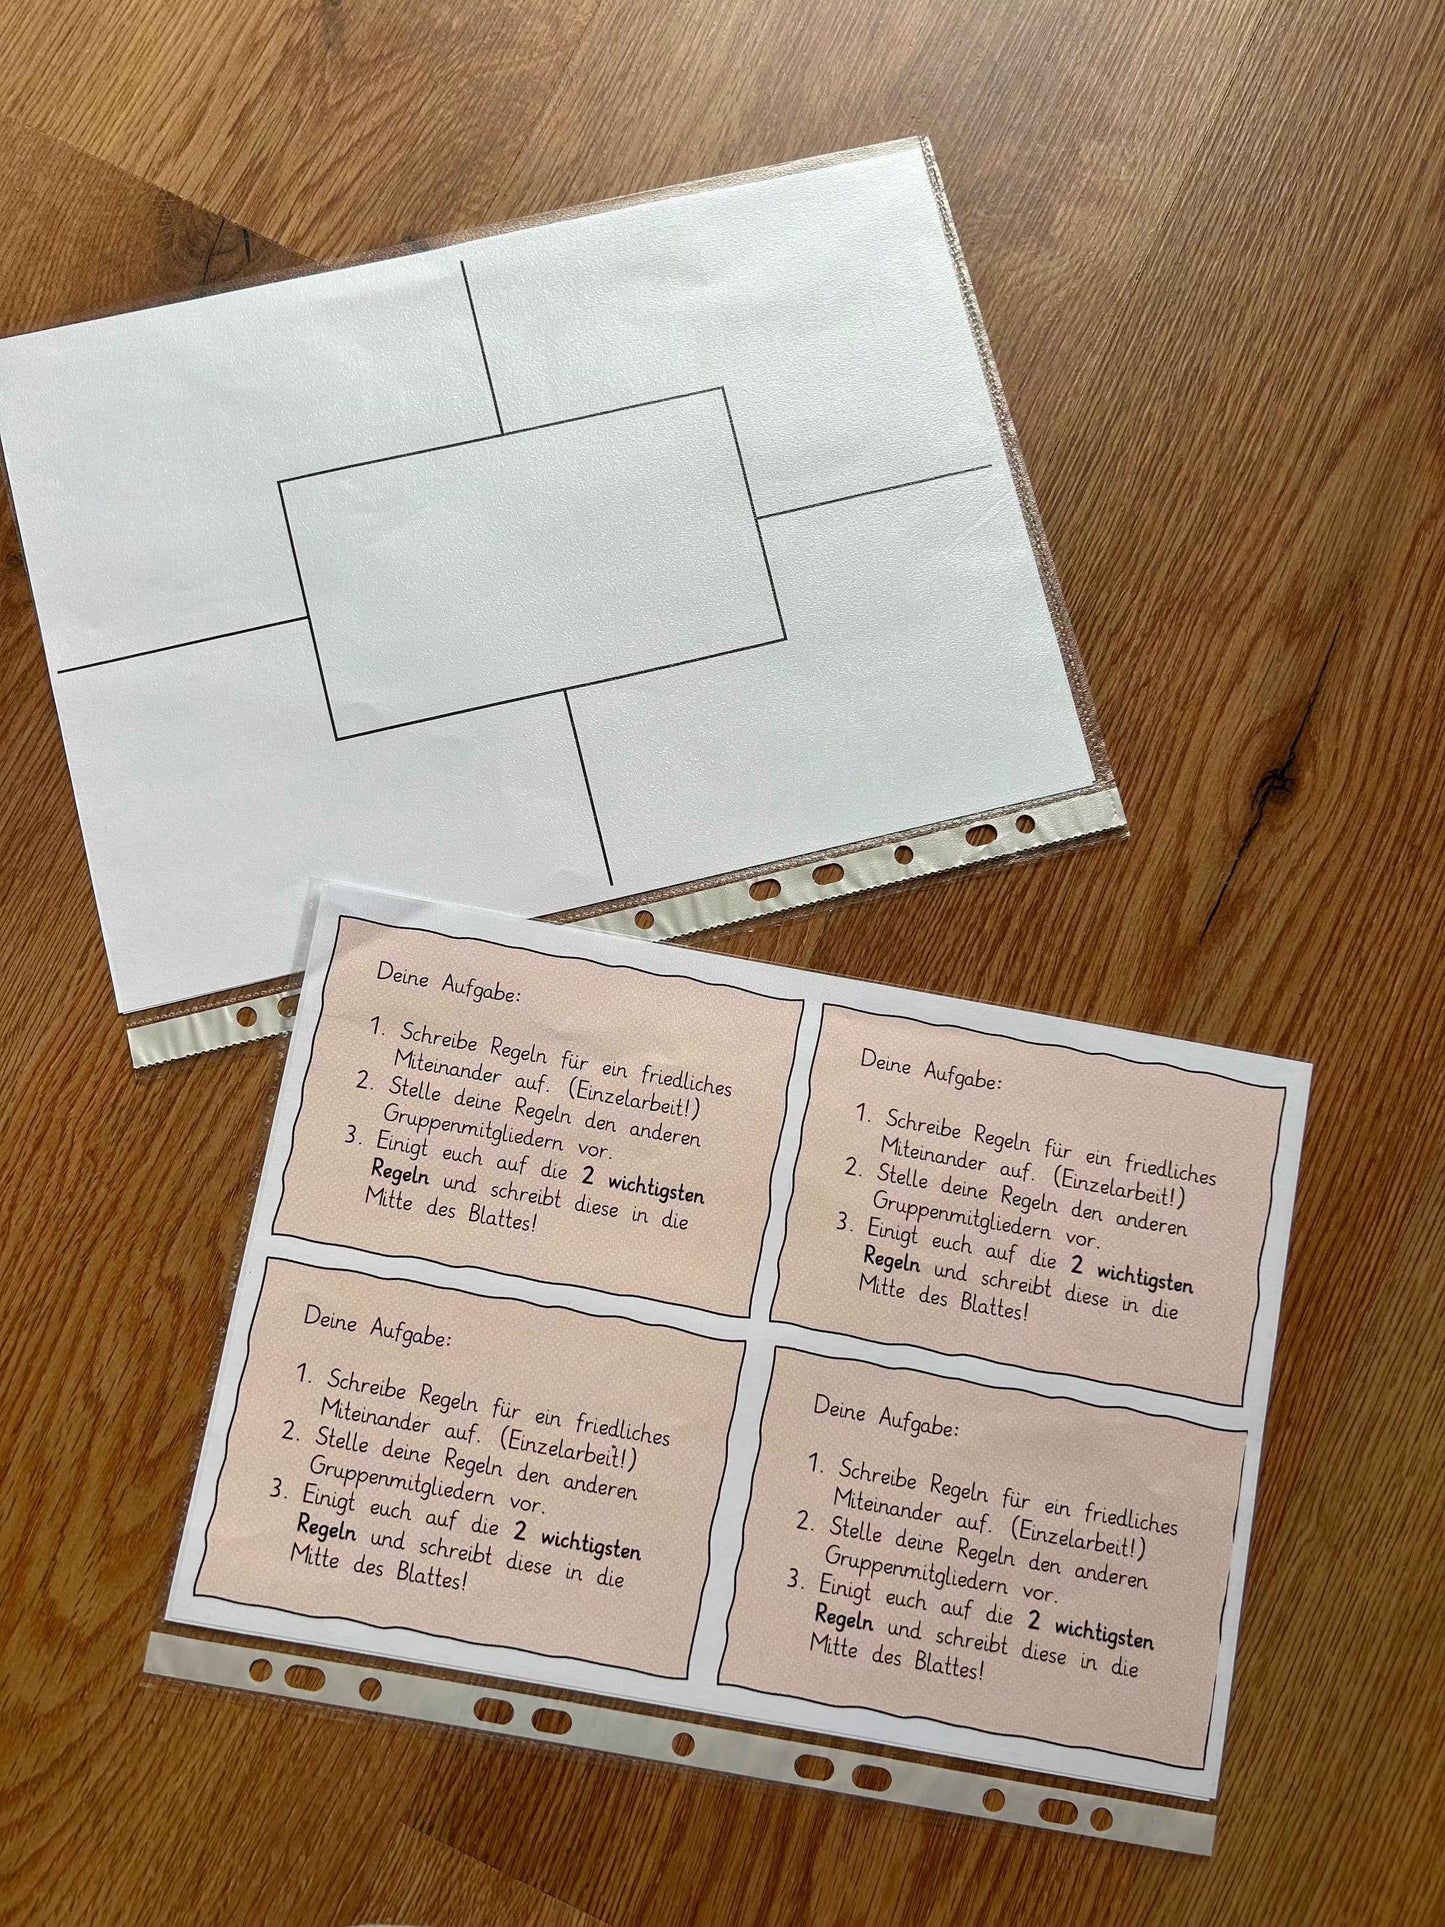 Deine Aufgabe:
1. Schreibe Regeln für ein friedliches
Miteinander auf. (Einzelarbeit!)
2. Stelle deine Regeln den anderen
Gruppenmitgliedern vor.
3. Einigt euch auf die 2 wichtigsten
Regeln und schreibt diese in die
Mitte des Blattes!
Deine Aufgabe:
1. Schreibe Regeln für ein friedliches
Miteinander auf. (Einzelarbeit!)
2. Stelle deine Regeln den anderen
Gruppenmitgliedern vor.
3. Einigt euch auf die 2 wichtigsten
Regeln und schreibt diese in die
Mitte des Blattes!
Deine Aufgabe:
1. Schreibe Regeln für ein friedliches
Miteinander auf. (Einzelarbeit!)
2. Stelle deine Regeln den anderen
Gruppenmitgliedern vor.
3. Einigt euch auf die 2 wichtigsten
Regeln und schreibt diese in die
Mitte des Blattes!
Deine Aufgabe:
1. Schreibe Regeln für ein friedliches
Miteinander auf. (Einzelarbeit!)
2. Stelle deine Regeln den anderen
Gruppenmitgliedern vor.
3. Einigt euch auf die 2 wichtigsten
Regeln und schreibt diese in die
Mitte des Blattes!